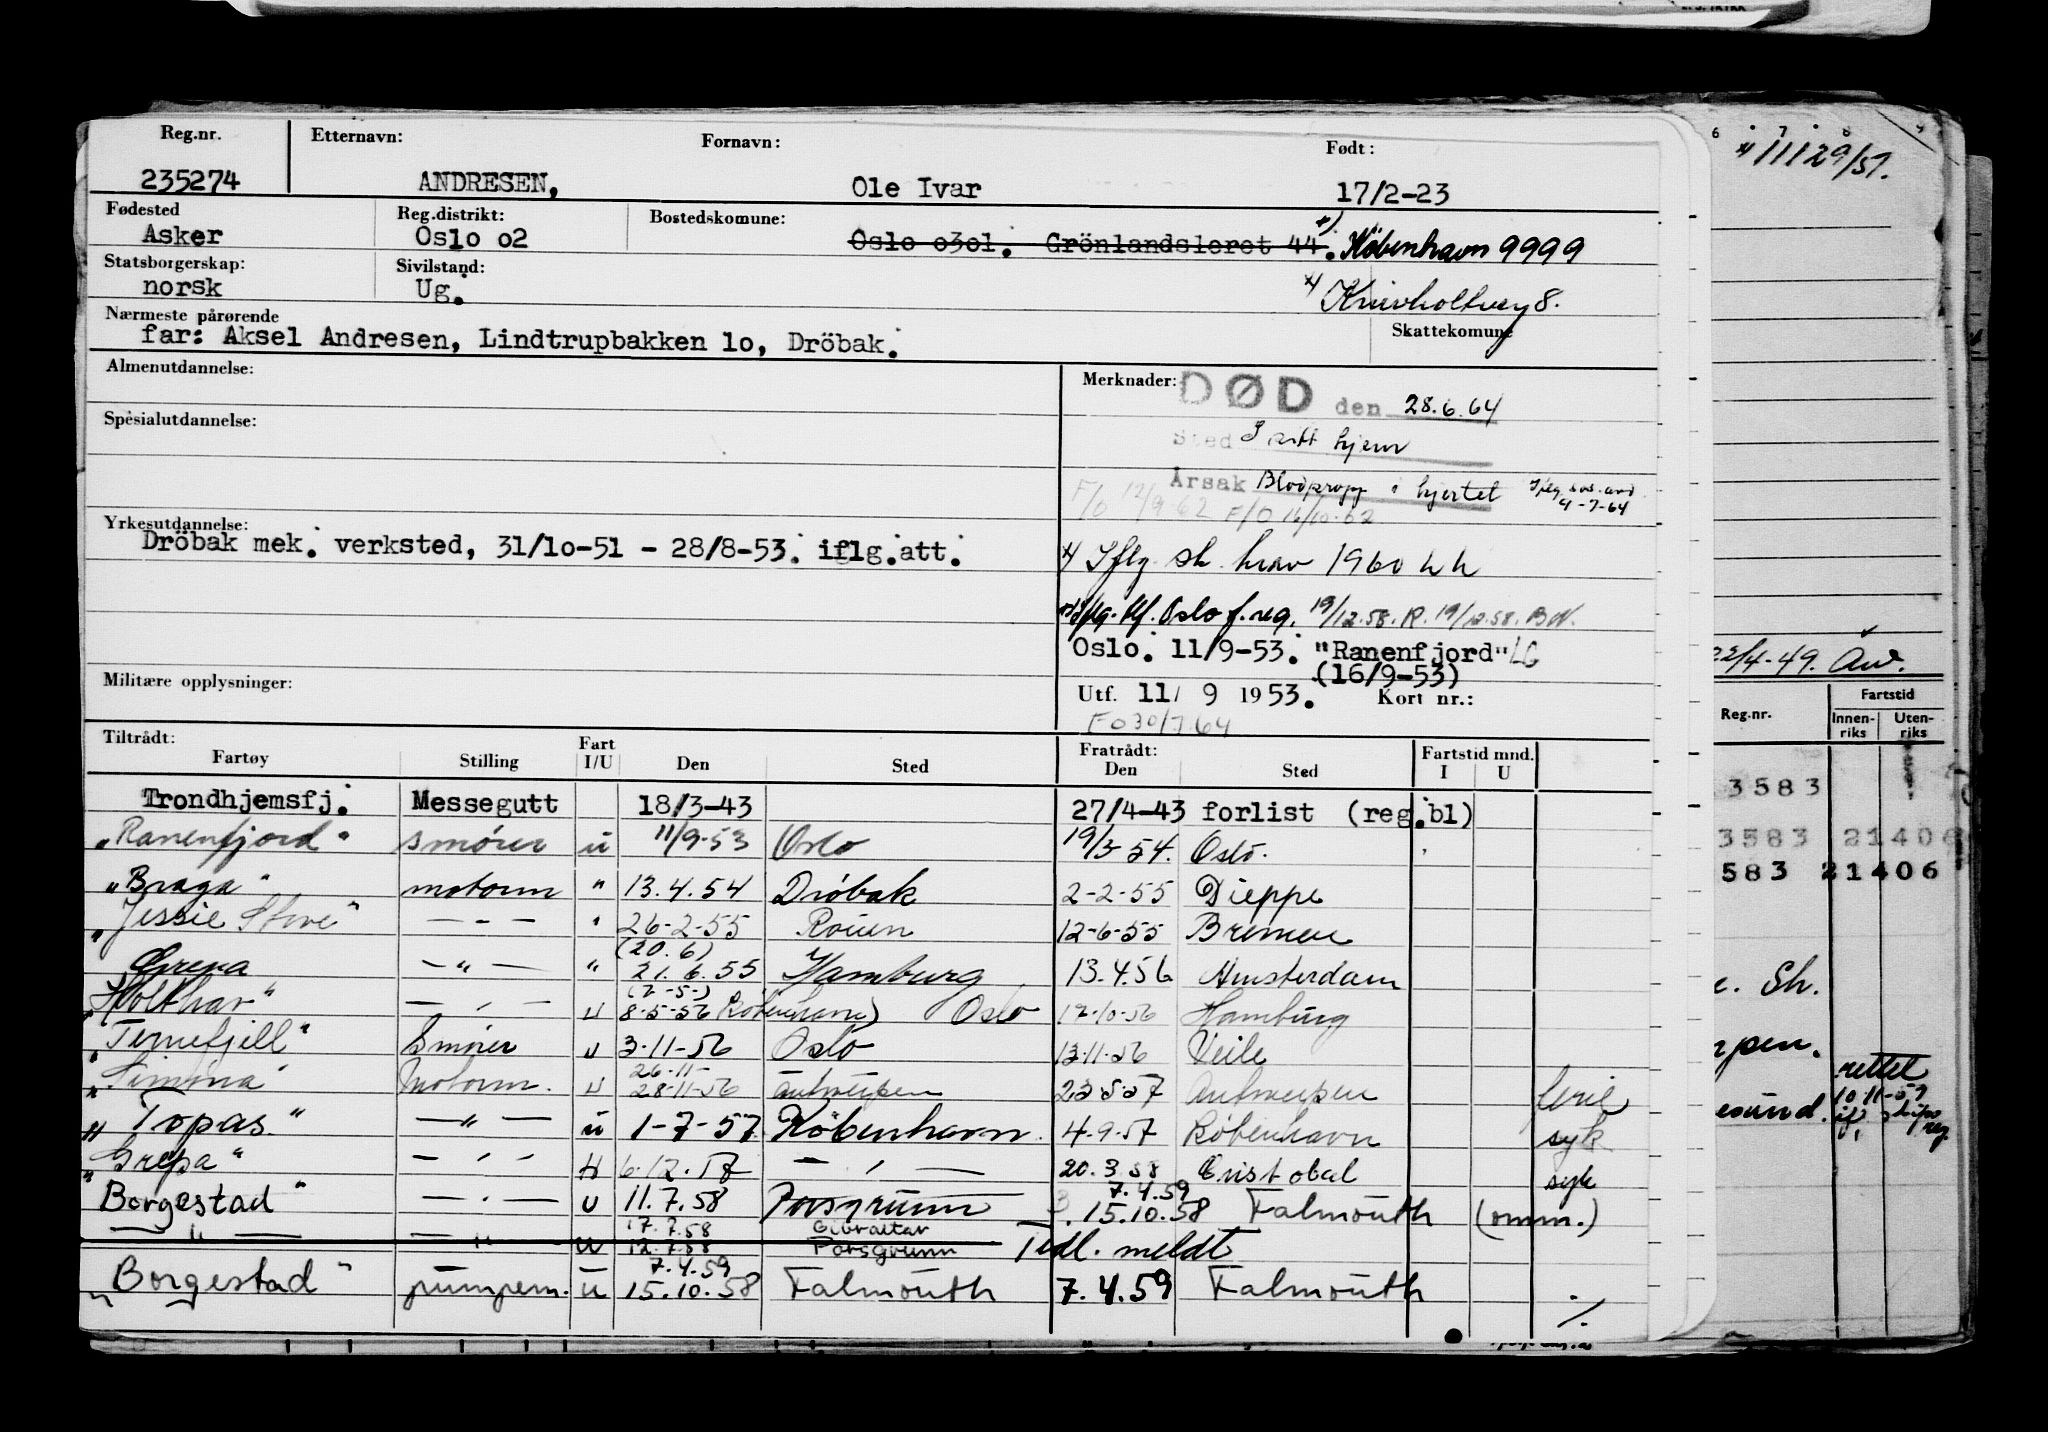 Reg.nr. Etternavn: Fornavn: Født:
235274 ANDRESEN, Ole Ivar 17/2-23
Fødested Reg.distrikt: Bostedskomune:
Asker Oslo o2 Oslo o3o1. Grönlandsleret 44. København 9999
Statsborgerskap: Sivilstand:
norsk Ug. 8.
Nærmeste pårørende Skattekomune
far: Aksel Andresen, Lindtrupbakken 1o, Dröbak.
Almenutdannelse: Merknader: DØD den 28.6.64
Spesialutdannelse: Sted I sitt hjem
Årsak Blodpropp i hjertet
4-7-64
F/O 12/9 62 F/O 16/10-62
Yrkesutdannelse:
Dröbak mek. verksted, 31/1o-51 - 28/8-53. iflg.att.
x) Iflg. sk. krav 1960 hh
Iflg. kf. Oslo f.reg. 19/12.58. R. 19/12.58. BN.
Oslo. 11/9-53. "Ranenfjord" LG
(16/9-53)
Militære opplysninger: Utf. 11/ 9 1953. Kort nr.:
FO 30/7.64
Tiltrådt: Fart Fratrådt: Fartstid mnd.
Fartøy Stilling I/U Den Sted Den Sted I U
Trondhjemsfj. Messegutt 18/3-43 27/4-43 forlist (reg.bl)
"Ranenfjord" smører u 11/9-53 Oslo 19/3 54. Oslo.
"Braga" motorm " 13.4.54 Dröbak 2-2-55 Dieppe
"Jessie Stove" — " — " 26-2-55 Rouen 12-6-55 Bremen
(20.6)
Grena — " — " 21.6.55 Hamburg 13.4.56 Amsterdam
(2-5-)
"Holthav" — " — u 8-5-56 København) Oslo 12-10-56 Hamburg
"Ternefjell" Smører u 3-11-56 Oslo 13-11-56 Veile
26-11-
"Simma" Motorm. u 28-11-56 Antwerpen 23-5-57 Antwerpen ferie
"Topas" — " — u 1-7-57 København. 4-9-57 København syk
"Grepa" — " — 6.12.57 — " — 20.3 58 Cristobal syk
7.4.59
"Borgestad" — " — u 11.7.58 Porsgrunn 15.10.58 Falmouth (omm.)
17.7.58 Gibraltar
— " — — " — u 12.7.58 Porsgrunn Tidl. meldt
7.4.59
"Borgestad" pumpem. u 15.10.58 Falmouth 7.4.59 Falmouth ./.
6 7 8
x) 11129/57.
22/4-49.
Fartstid
Reg.nr. Innen- Uten-
riks riks
3583
3583 21406
583 21406
Sh.
rettet
10.11-59